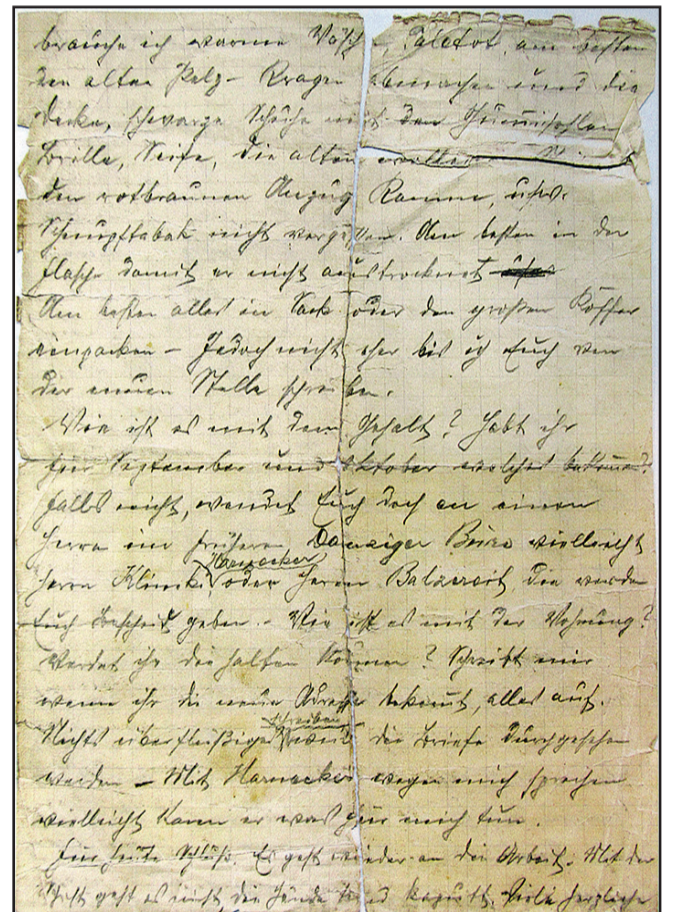 brauche ich warme Wäsche, Paletot, am besten
den alten Pelz-Kragen abmachen und die
Decke, schwarze Schuhe mit den Gummisohlen
Brille, Seife, die alten
den rotbraunen Anzug Kamm, usw.
Schnupftabak nicht vergessen. Am besten in der
Flasche damit er nicht austrocknet
Am besten alles in Sack oder den großen Koffer
einpacken – Jedoch nicht eher bis ich Euch von
der neuen Stelle schreiben.
Wie ist es mit dem Gehalt? Habt ihr
für September und Oktober welches bekommen?
Falls nicht, wendet Euch doch an einen
Herrn im früheren Danziger Büro vielleicht
Harnacker
Herrn Klinski oder Herrn Balzereit, die werden
Euch Bescheid geben. – Wie ist es mit der Wohnung?
Werdet ihr die halten können? Schreibt mir
wenn ihr die neue Adresse bekommt, alles auf.
schreiben
Nichts überfleißiges weil die Briefe durchgesehen
werden – Mit Harnacker wegen mich sprechen
vielleicht kann er was für mich tun.
Für heute Schluß. Es geht wieder an die Arbeit. Mit der
geht es nicht die Hände sind kaputt. Viele herzliche